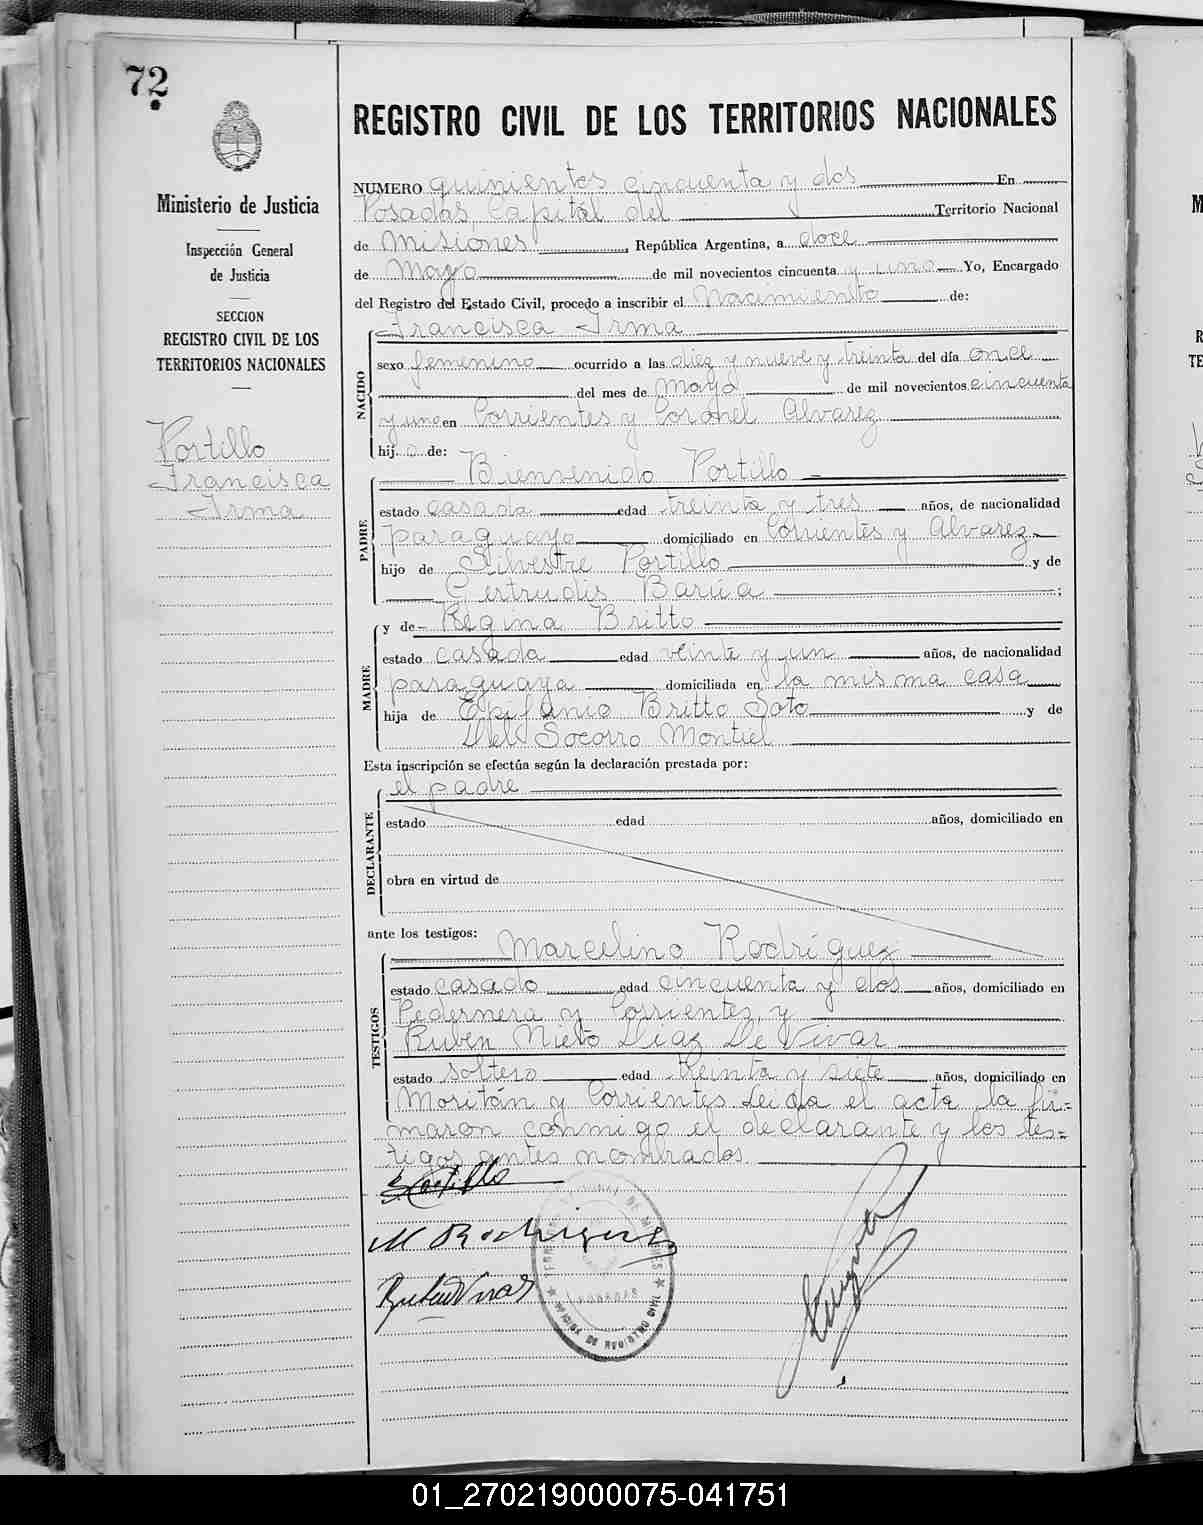 72
Ministerio de Justicia
Inspección General
de Justicia
SECCION
REGISTRO CIVIL DE LOS
TERRITORIOS NACIONALES
Portillo
Francisca
Irma
REGISTRO CIVIL DE LOS TERRITORIOS NACIONALES
NUMERO quinientos cincuenta y dos En
Posadas, Capital del Territorio Nacional
de Misiones, República Argentina, a doce
de Mayo de mil novecientos cincuenta y uno Yo, Encargado
del Registro del Estado Civil, procedo a inscribir el Nacimiento de:
NACIDO
Francisca Irma
sexo femenino ocurrido a las diez y nueve y treinta del día once
del mes de Mayo de mil novecientos cincuenta
y uno en Corrientes y Coronel Alvarez
hij a de:
PADRE
Bienvenido Portillo
estado casado edad treinta y tres años, de nacionalidad
paraguayo domiciliado en Corrientes y Alvarez
hijo de Silvestre Portillo y de
Gertrudis Barúa ;
MADRE
y de Regina Britto
estado casada edad veinte y un años, de nacionalidad
paraguaya domiciliada en la misma casa
hija de Epifanio Britto Soto y de
Del Socorro Montiel
Esta inscripción se efectúa según la declaración prestada por:
DECLARANTE
el padre
estado edad años, domiciliado en
obra en virtud de
ante los testigos:
TESTIGOS
Marcelino Rodríguez
estado casado edad cincuenta y dos años, domiciliado en
Pedernera y Corrientes, y
Rubén Nieto Diaz De Vivar
estado soltero edad treinta y siete años, domiciliado en
Moritán y Corrientes Leida el acta la fir=
maron conmigo el declarante y los tes=
tigos antes nombrados.
B Portillo
M Rodriguez
Ruben Vivar
OFICINA DE REGISTRO CIVIL
POSADAS
01_270219000075-041751